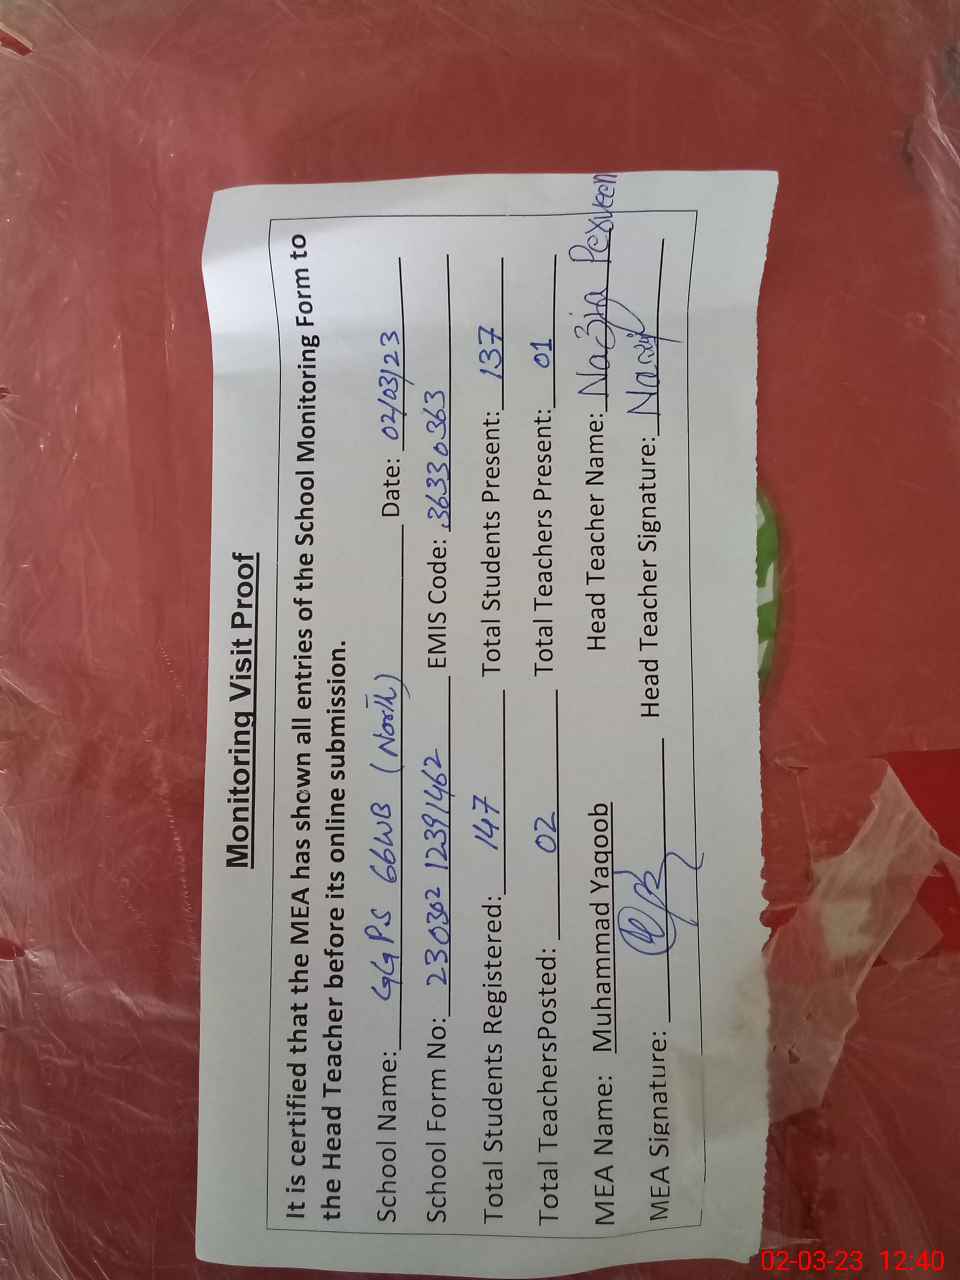 Monitoring Visit Proof
It is certified that the MEA has shown all entries of the School Monitoring Form to
the Head Teacher before its online submission.
School Name: GGPS 66WB (North) Date: 02/03/23
School Form No: 230302 12391462 EMIS Code: 36330363
Total Students Registered: 147 Total Students Present: 137
Total TeachersPosted: 02 Total Teachers Present: 01
MEA Name: Muhammad Yaqoob Head Teacher Name: Nazia Perveen
MEA Signature: Head Teacher Signature:
02-03-23 12:40